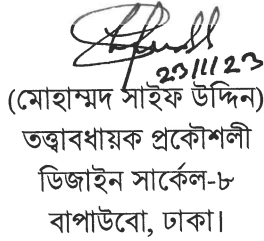 23/11/23
(মোহাম্মদ সাইফ উদ্দিন)
তত্ত্বাবধায়ক প্রকৌশলী
ডিজাইন সার্কেল-৮
বাপাউবো, ঢাকা।